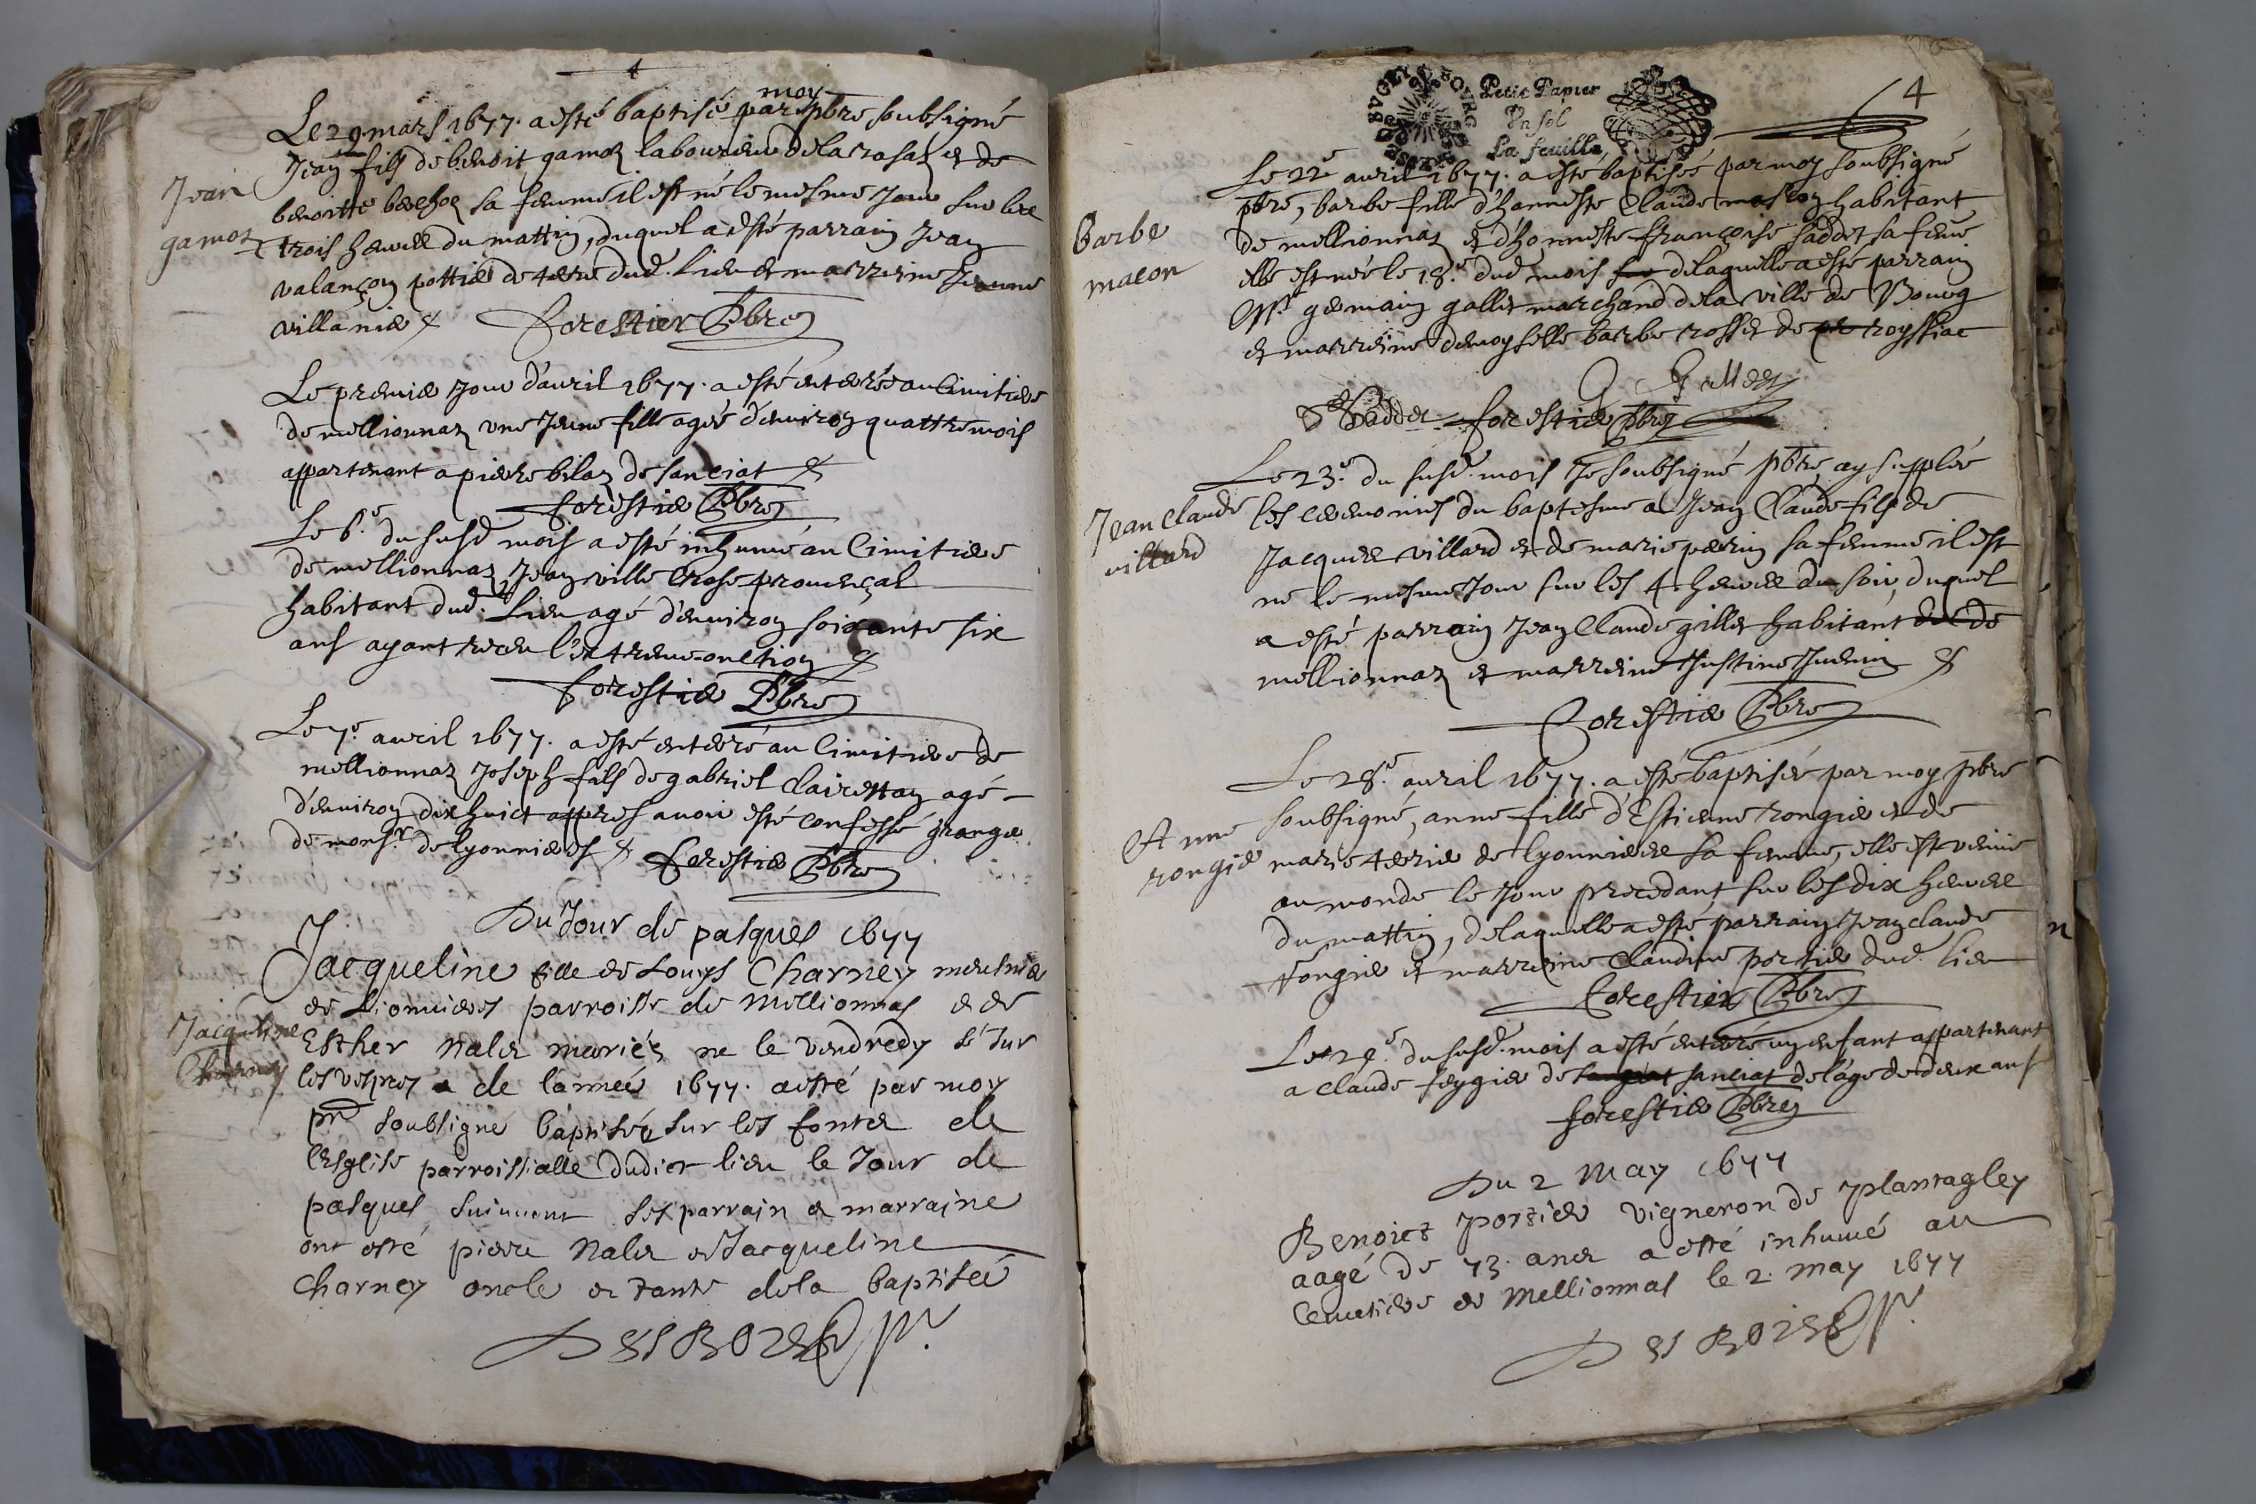 Le 29 mars 1677. a esté baptisé par moy pbre soubsigné
Jean fils de benoit gamoz laboureur de la rasaz et de
benoitte sa femme il est né le mesme jour sur les
Jean
gamoz
trois heures du mattin, duquel a esté parrain Jean
valançon pottier de terre dud. lieu et marreine Jeanne
villanier
Forestier Pbre
Le premier jour d'avril 1677. a esté enterrée au Cimitiere
de mellionnaz une jeune fille agée d'environ quattre mois
appartenant a pierre bilaz de sanciat
forestier Pbre
Le 6e du susd. mois a esté inhumé au Cimitiere
de mellionnaz Jean ville Crose provençal
habitant dud. lieu agé d'environ soixante six
ans ayant receu l'extreme-onction
forestier Pbre
Le 7e. avril 1677. a esté enterré au Cimitiere de
mellionnaz Joseph fils de gabriel Clairettan agé
d'environ dix huict appres avoir esté confessé granger
de monsr. de lyonnieres
forestier Pbre
Du Jour de pasques 1677
Jacqueline fille de Louys Charney meusnier
de Lionnieres parroisse de Mellionnas & de
Jacqueline
Charney
Esther Nalet mariés ne le vendredy st sur
les vespres de l'année 1677. a esté par moy
pre soubsigné baptisée sur les fonts de
l'Esglise parroissialle dudict lieu le Jour de
pasques suivvent ses parrain & marraine
ont esté pierre Nalet et Jacqueline
Charney oncle et tante de la baptisée
DESBOIS Pr.
4
Petit Papier
Un sol
La feuille
Le 22e avril 1677. a esté baptisée par moy soubsigné
pbre, barbe fille d'honneste Claude mascon habitant
Barbe
macon
de mellionnaz et d'honneste françoise saddet sa feme
elle est née le 18e. dud. mois de laquelle a esté parrain
Mr. germain gallet marchand de la ville de Bourg
et marreine demoyselle barbe rosset de royssiac
G Gallet
Saddet forestier Pbre
Le 23e. du susd. mois Je soubsigné pbre, ay supplée
Jean Claude
villard
les ceremonies du baptesme a Jean Claude fils de
Jacques villard et de marie perrin sa femme il est
né le mesme jour sur les 4 heures du soir, duquel
a esté parrain Jean Claude gillet habitant de
mellionnaz et marreine Justine Juenin
Forestier Pbre
Le 28e. avril 1677. a esté baptisée par moy pbre
soubsigné, anne fille d'Estienne rongier et de
Anne
rongier
marie terrier de lyonnieres sa femme, elle est venue
au monde le jour precedant sur les dix heures
du mattin, de laquelle a esté parrain Jean claude
rongier et marreine Claudine portier dud. lieu
Forestier Pbre
Le 29e. du susd. mois a esté enterré un enfant appartenant
a claude feygier de sanciat de l'age de deux ans
forestier Pbre
Du 2 May 1677
Benoict portier vigneron de plantagley
aagé de 73. ans a esté inhumé au
Cemetiere de Mellionnas le 2. may 1677
DESBOIS Pr.